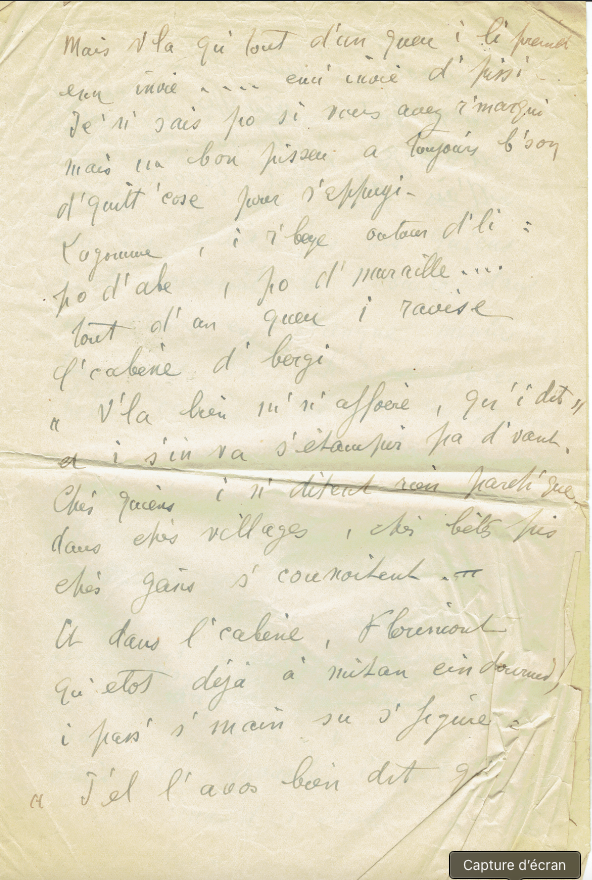 Mais v'la qu'tout d'un queu i li prend
enn invie .... enn' invie d'pissi -
Je n'sais po si vous avez r'marqui
mais un bon pisseu a toujours b'son
d'quitt'cose pour s'appuyi -
, i r'beye autour d'li :
po d'abe , po d'muraille ....
tout d'un queu i ravise
l'cabène d'bergi
« V'la bien m'n'affoere, qu'i dit »
et i s'in va s'étampir pa d'vant.
Chés quiens i n'ditent rien parch'que
dans chés villages, chés bêts pis
chés gens s'counoitent .--
Et dans l'cabène, Florimont
qu'etot déjà à mitan eindourmi,
i pass' s'main su s'figure :
« J'el l'avos bien dit qu'
Capture d'écran